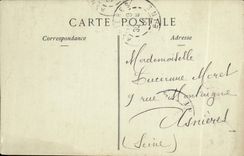 CARTE POSTALE
Correspondance
Adresse
Mademoiselle
Lucienne Moret
9 rue Montaigne
Asnières
(Seine)